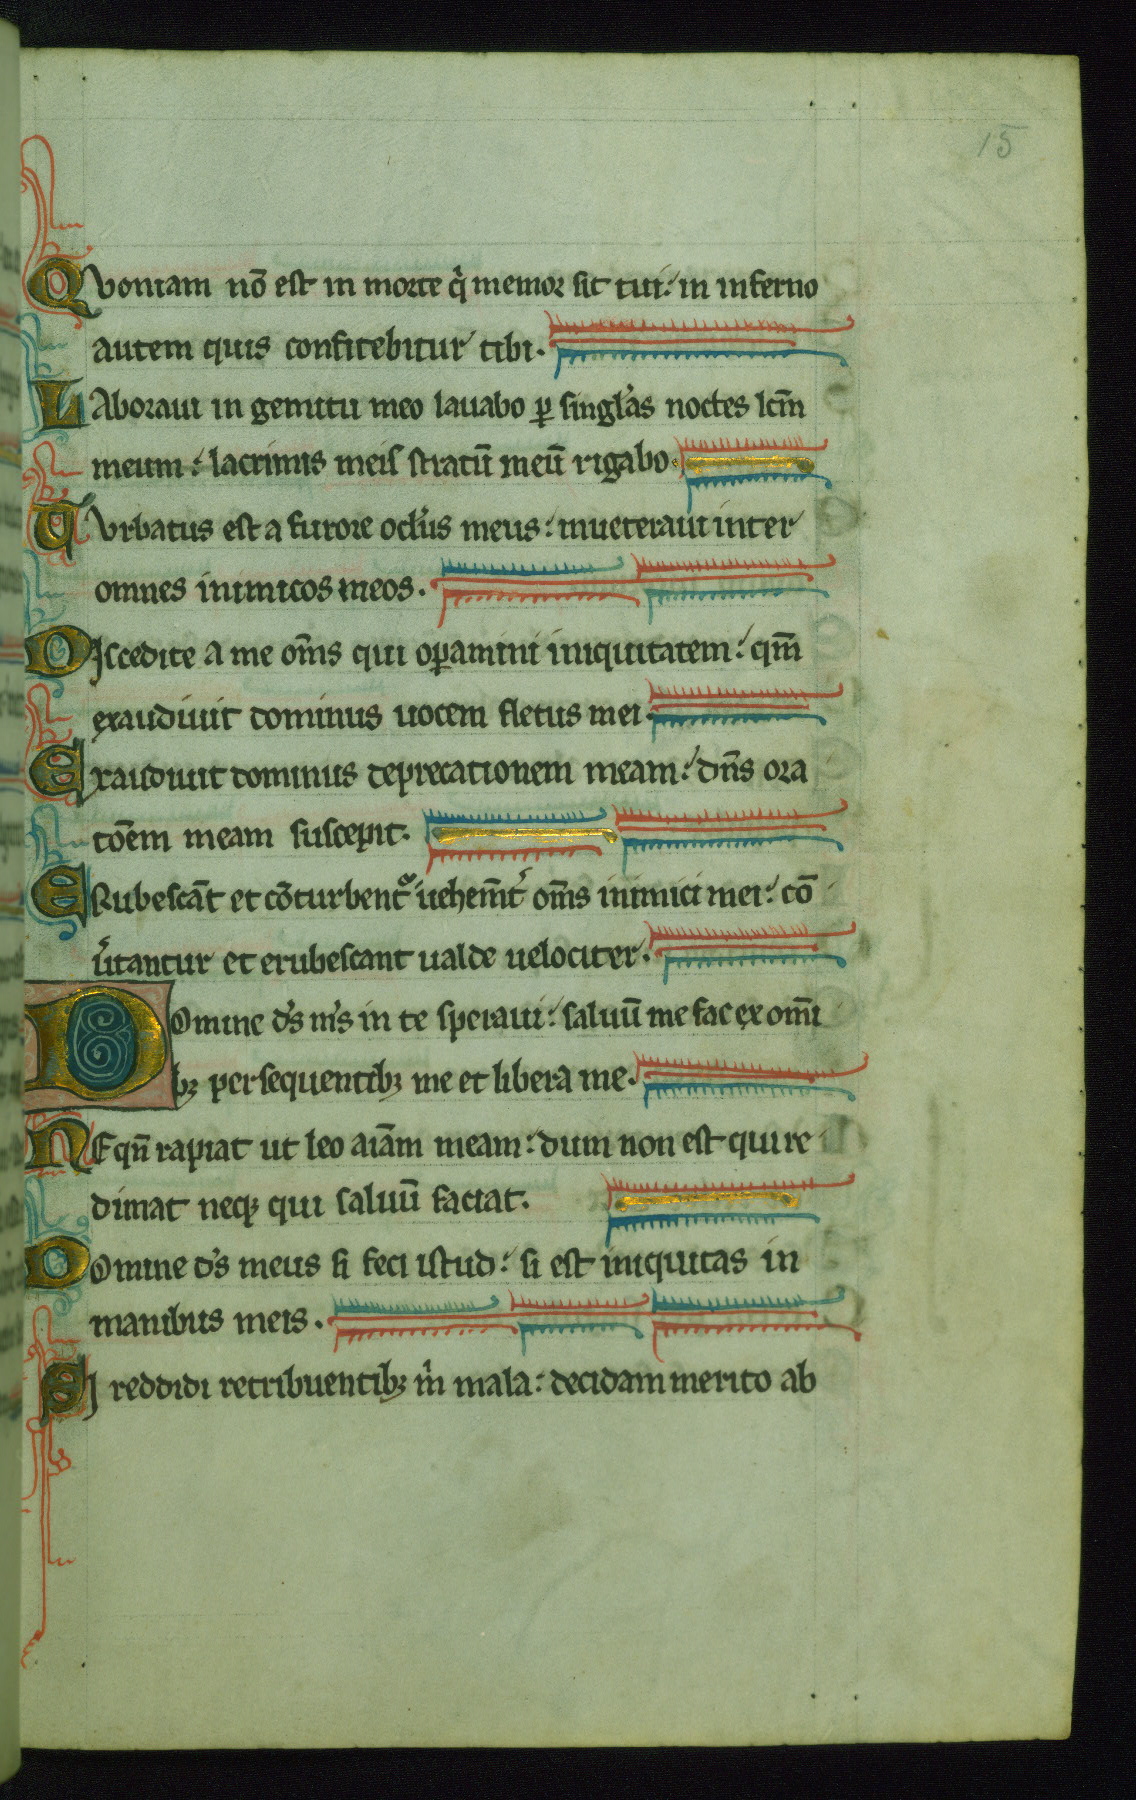 15
Quoniam nō est in morte q̇ memor sit tui: in inferno
autem quis confitebitur tibi.
Laboraui in gemitu meo lauabo ꝑ singl'as noctes lcm̄
meum: lacrimis meis stratū meū rigabo.
Turbatus est a furore ocl'us meus: inueteraui inter
omnes inimicos meos.
Discedite a me om̄s qui oꝑamini iniquitatem: qm̄
exaudiuit dominus uocem fletus mei.
Exaudiuit dominus deprecationem meam: dn̄s ora
tōem meam suscepit.
Erubescāt et cōturbent᷑ uehem̄t' om̄s inimici mei: cō
u'tantur et erubescant ualde uelociter.
Domine d's m's in te speraui: saluū me fac ex om̄i
bꝫ persequentibꝫ me et libera me.
Nequn̄ rapiat ut leo aiām meam: dum non est qui re
dimat neqꝫ qui saluū faciat.
Domine d's meus si feci istud: si est iniquitas in
manibus meis.
Si reddidi retribuentibꝫ m̊ mala: decidam merito ab